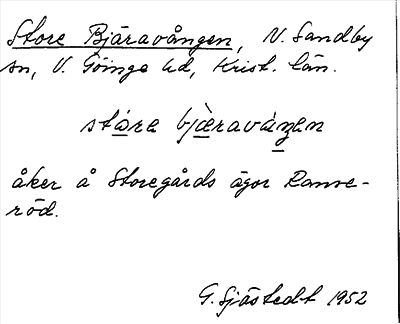 Store Bjäravången, N. Sandby
sn, V. Göinge hd, Krist. län.
stóra bjæ̀raváŋen
åker å Storegårds ägor Ranse-
röd.
G. Sjöstedt 1952